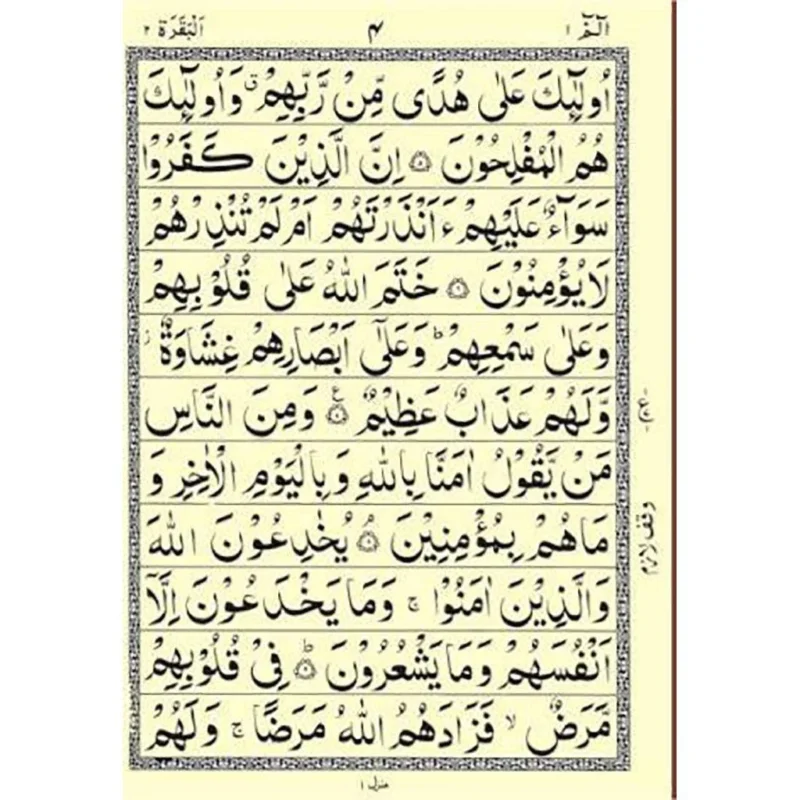 الٓمّٓ ١ ۴ اَلْبَقَرَة ٢
اُولٰٓئِكَ عَلٰى هُدًى مِّنْ رَّبِّهِمْ ۙ وَاُولٰٓئِكَ
هُمُ الْمُفْلِحُوْنَ ۝٥ اِنَّ الَّذِيْنَ كَفَرُوْا
سَوَآءٌ عَلَيْهِمْ ءَاَنْذَرْتَهُمْ اَمْ لَمْ تُنْذِرْهُمْ
لَا يُؤْمِنُوْنَ ۝٦ خَتَمَ اللّٰهُ عَلٰى قُلُوْبِهِمْ
وَعَلٰى سَمْعِهِمْ ؕ وَعَلٰٓى اَبْصَارِهِمْ غِشَاوَةٌ ؗ
وَّلَهُمْ عَذَابٌ عَظِيْمٌ ۝٧ع وَمِنَ النَّاسِ
مَنْ يَّقُوْلُ اٰمَنَّا بِاللّٰهِ وَبِالْيَوْمِ الْاٰخِرِ وَ
مَا هُمْ بِمُؤْمِنِيْنَ ۝٨ۘ يُخٰدِعُوْنَ اللّٰهَ
وَالَّذِيْنَ اٰمَنُوْا ۚ وَمَا يَخْدَعُوْنَ اِلَّاۤ
اَنْفُسَهُمْ وَمَا يَشْعُرُوْنَ ۝٩ؕ فِيْ قُلُوْبِهِمْ
مَّرَضٌ ۙ فَزَادَهُمُ اللّٰهُ مَرَضًا ۚ وَلَهُمْ
وقف لازم
منزل ١